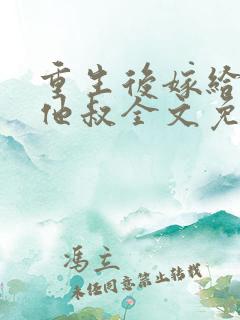 重生後嫁給
他叔全文免
馮立
未任同意禁止轉載